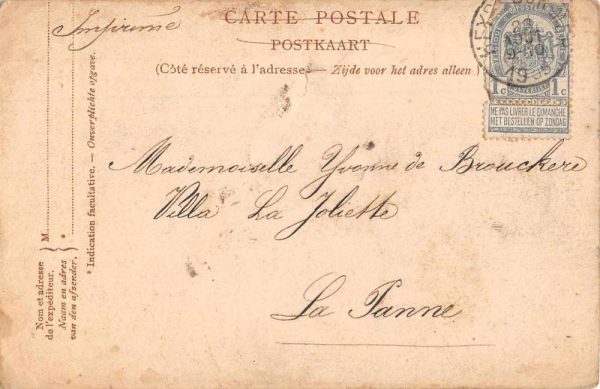 Imprimé
CARTE POSTALE
POSTKAART
(Côté réservé à l'adresse — Zijde voor het adres alleen)
1c 1c
NE PAS LIVRER LE DIMANCHE
NIET BESTELLEN OP ZONDAG
Mademoiselle Yvonne de Brouckere
Villa La Joliette
La Panne
* Indication facultative. — Onverplichte opgave.
M
*
Nom et adresse
de l'expéditeur.
Naam en adres
van den afzender.